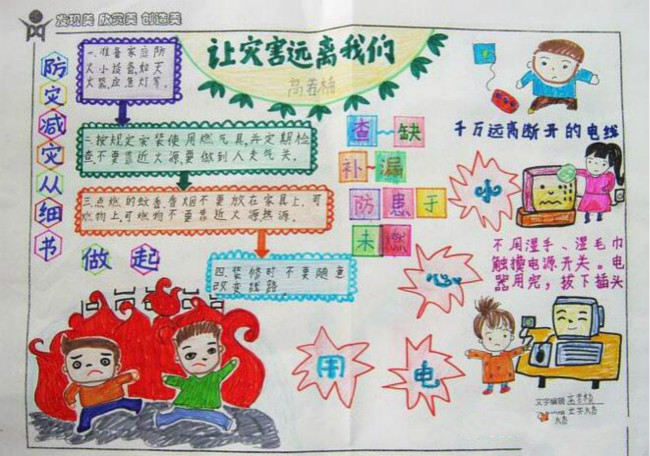 发现美 欣赏美 创造美
让灾害远离我们
防灾减灾从细书
做起
一.准备家应防
火小设备,如灭
火器,应急灯等.
二.按规定安装使用燃气具,并定期检
查.不要靠近火源要做到人走气关.
三.点燃的蚊香,香烟不要放在家具上,可
燃物上,可燃物不要靠近火源热源.
四.装修时不要随意
改变线路.
查缺
补漏
防患于
未燃
千万远离断开的电线
小
心
用
电
不用湿手、湿毛巾
触摸电源开关。电
器用完,拔下插头
文字编辑